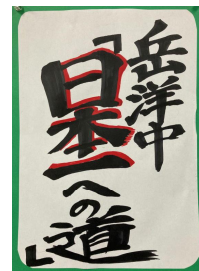 岳洋中
「日本一への道」